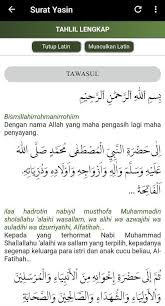 Surat Yasin
TAHLIL LENGKAP
Tutup Latin
Munculkan Latin
TAWASUL
بِسْمِ اللهِ الرَّحْمٰنِ الرَّحِيْمِ
Bismillahirrohmanirrohiim
Dengan nama Allah yang maha pengasih lagi maha
penyayang.
اِلَى حَضْرَةِ النَّبِيِّ الْمُصْطَفَى مُحَمَّدٍ صَلَّى اللهُ
عَلَيْهِ وَسَلَّمَ وَآلِهِ وَأَزْوَاجِهِ وَأَوْلَادِهِ وَذُرِّيَّاتِهِ.
الْفَاتِحَةُ ...
ilaa hadrotin nabiyil musthofa Muhammadin
sholallahu 'alaihi wasallam, wa alihi wa azwajihi wa
auladihi wa dzuriyatihi, Alfatihah...
Kepada yang terhormat Nabi Muhammad
Shallallahu 'alaihi wa sallam yang terpilih, kepadanya
segenap keluarga para istri dan anak cucu beliau, Al-
Fatihah...
اِلَى حَضْرَةِ إِخْوَانِهِ مِنَ الْأَنْبِيَاءِ وَالْمُرْسَلِيْنَ
وَالْأَوْلِيَاءِ وَالشُّهَدَاءِ وَالصَّالِحِيْنَ وَالصَّحَابَةِ